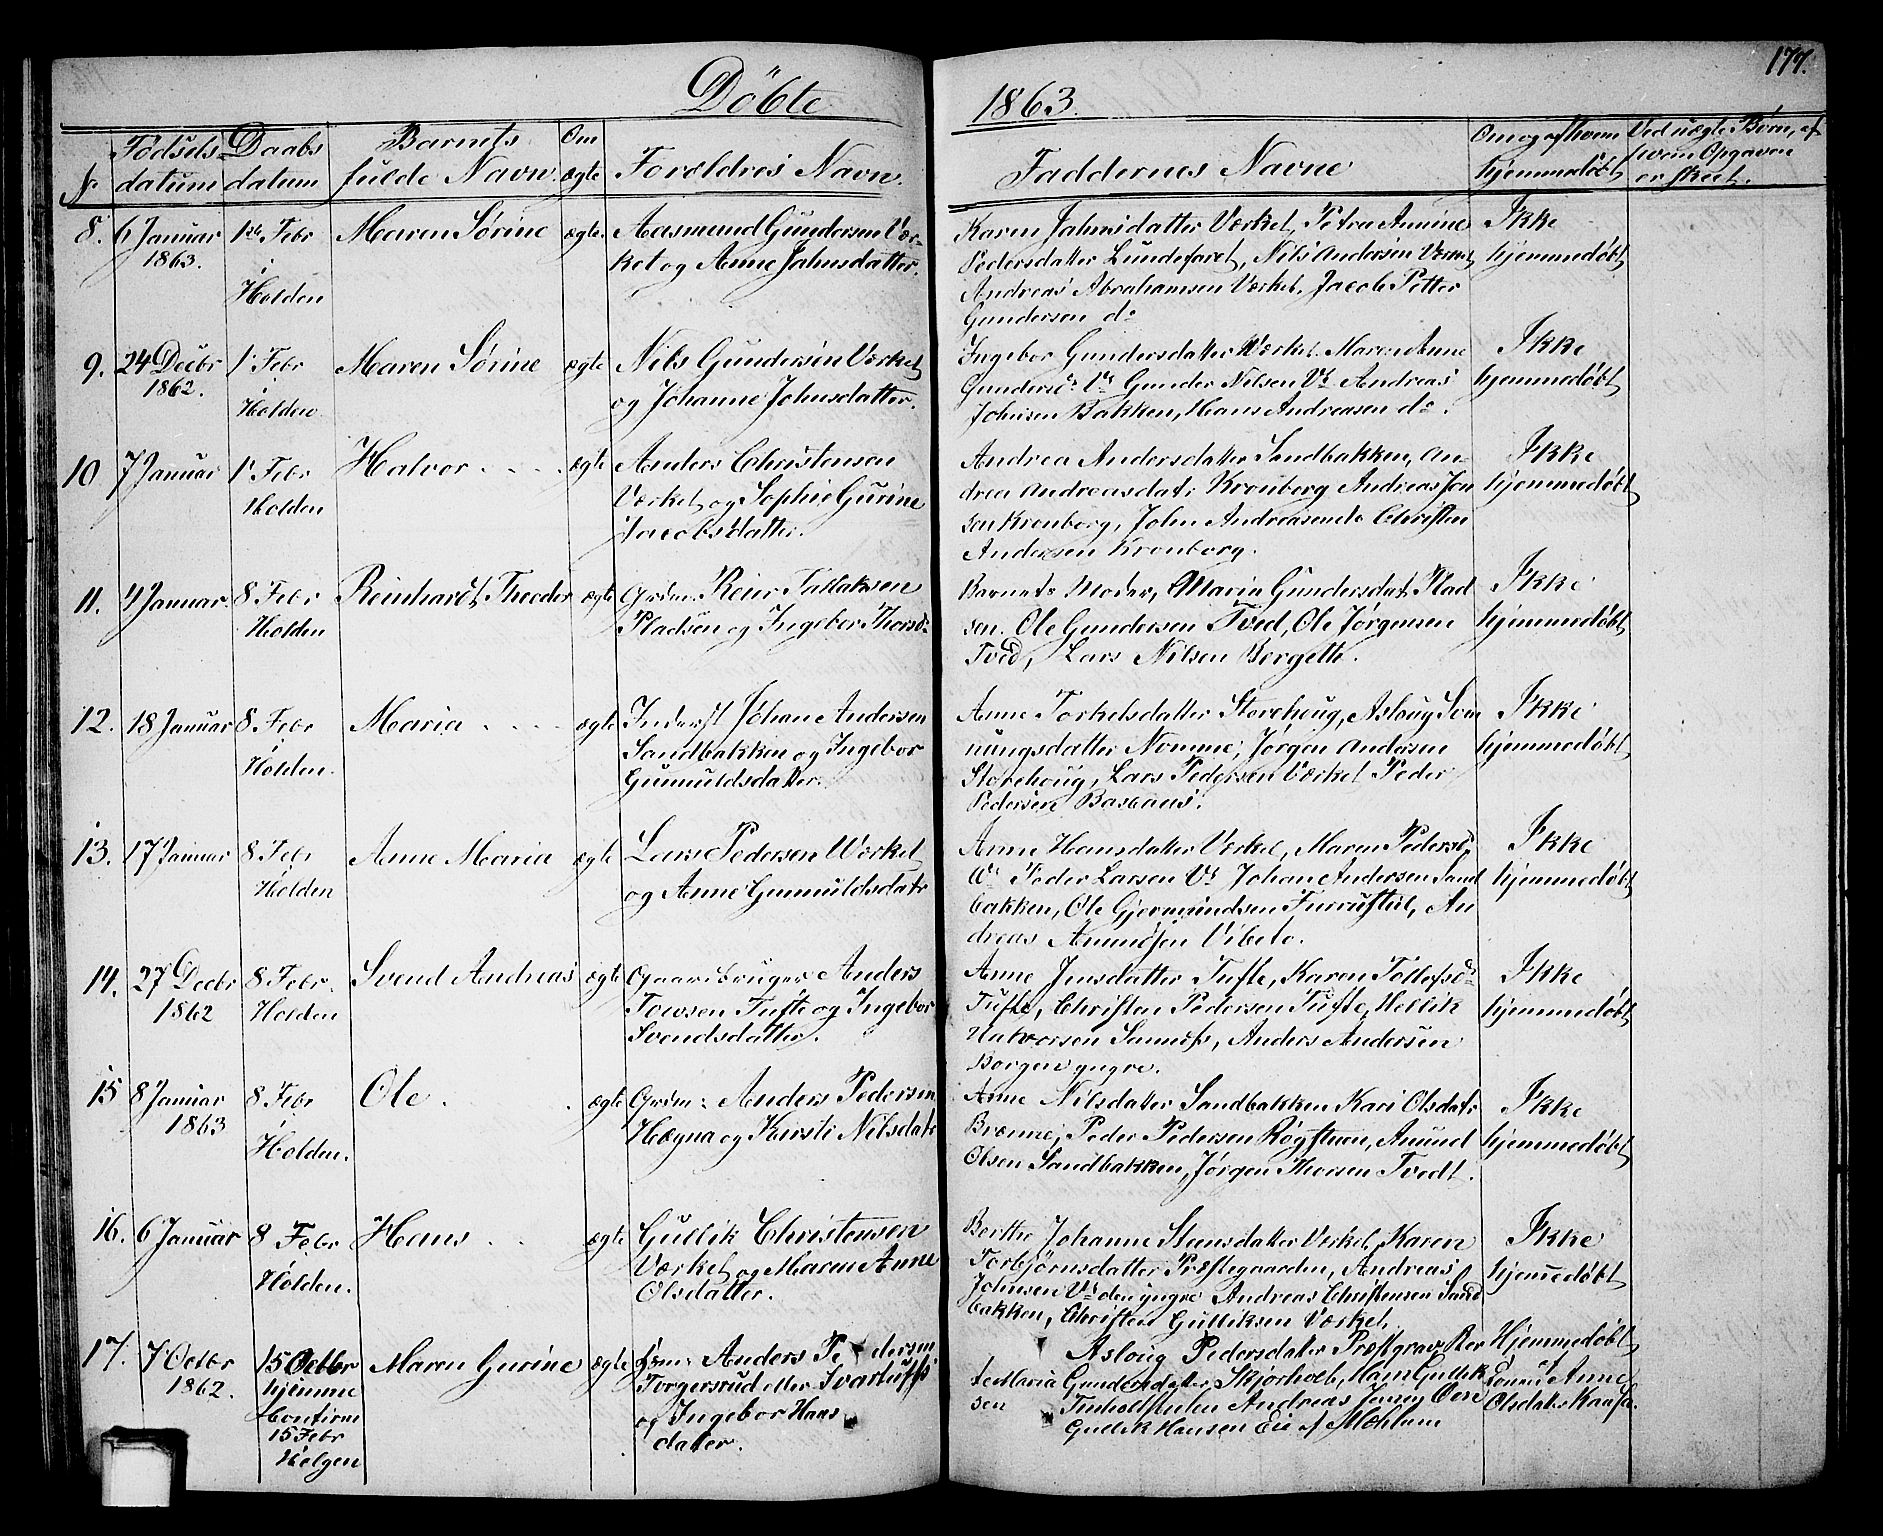 177.
Döbte 1863.
№
Födsels-
datum
Daabs
datum
Barnets
fulde Navn
Om
ægte
Forældres Navn.
Faddernes Navne
Om og af hvem
hjemmedöbt
Ved uægte Børn, af
hvem Opgaven
er skeet.
8. 6 Januar
1863.
1ste Febr
i
Holden
Maren Sørine
ægte.
Aasmund Gundersen Vær-
ket og Anne Jahnsdatter.
Karen Jahnsdatter Værket, Petra Amine
Pedersdatter Lundefaret, Nils Andersen Værket
Andreas Abrahamsen Værket, Jacob Petter
Gundersen do
Ikke
hjemmedöbt
9. 24 Decbr
1862.
1. Febr
i
Holden
Maren Sørine
ægte
Nils Gundersen Værket
og Johanne Johnsdatter.
Ingebor Gundersdatter Værket. Maren Anne
Gundersd. Vs Gunder Nilsen Vs Andreas
Johnsen Bakken, Hans Andreasen do.
Ikke
hjemmedöbt
10 7 Januar
1. Febr
Holden
Halvor
ægte
Anders Christensen
Værket og Sophie Gurine
Jacobsdatter.
Andrea Andersdatter Sandbakken, An-
drea Andreasdatr Kronborg Andreas Jon
sen Kronborg, John Andreasen do Christen
Andersen Kronborg.
Ikke
hjemmedöbt
11. 4 Januar.
8 Febr
Holden
Reinhardt Theodor
ægte
Grdm: Reier Tallaksen
Pladsen og Ingebor Thorsd:
Barnets Moder, Maria Gundersdat. Plad
sen. Ole Gundersen Tved, Ole Jörgensen
Tved, Lars Nilsen Bergette.
Ikke
hjemmedöbt
12. 18 Januar
8. Febr
Holden.
Maria
ægte
Inderst Johan Andersen
Sandbakken og Ingebor
Gunnuldsdatter.
Anne Torkelsdatter Storehoug, Asloug Svin
nungsdatter Nomme, Jørgen Andersen
Storehoug, Lars Pedersen Værket Peder
Pedersen
Ikke
hjemmedöbt
13. 17 Januar
8. Febr
Holden
Anne Maria
ægte
Lars Pedersen Værket
og Anne Gunnuldsdatr
Anne Hansdatter Værket, Maren Pedersd.
Vs Peder Larsen Vs Johan Andersen Sand
bakken, Ole Gjermundsen Furrustul, An
dreas Amundsen Vibeto.
Ikke
hjemmedöbt
14. 27 Decbr
1862
8 Febr.
Holden
Svend Andreas
ægte
Gaardbruger Anders
Tovsen Tufte og Ingebor
Svendsdatter.
Anne Jensdatter Tufte, Karen Tollefsd:
Tufte, Christen Pedersen Tufte, Hellik
Halvorsen Sannæss, Anders Andersen
Borgen yngre.
Ikke
hjemmedöbt
15 8 Januar
1863
8 Febr
Holden.
Ole.
ægte
Grdm: Anders Pedersen
Hægna og Kirsti Nilsdatr
Anne Nilsdatter Sandbakken Kari Olsdatr
Brenne, Peder Pedersen Røgstuen, Amund
Olsen Sandbakken, Jörgen Thorsen Tvedt.
Ikke
hjemmedöbt
16. 6 Januar
8 Febr
Holden.
Hans
ægte
Gullik Christensen
Værket og Maren Anne
Olsdatter.
Berthe Johanne Steensdatter Værket, Karen
Torbjörnsdatter Præstegaarden, Andreas
Johnsen Vs den yngre Andreas Christensen Sand
bakken, Christen Gulliksen Værket.
Ikke
hjemedöbt
17. 7 Octbr
1862.
15 Octbr
hjemme
Confirm
15 Febr
Helgen
Maren Gurine
ægte
Grdm: Anders Pedersen
Torgersrud eller Svartufs
og Ingebor Hans
datter.
Asloug Pedersdatter
Maria Gundersdatter Skjørholt, Hans Gullik
sen Andreas Jensen
Gullik Hansen Eie af Mæhlum
Hjemmedöbt
Anne
Olsdatr